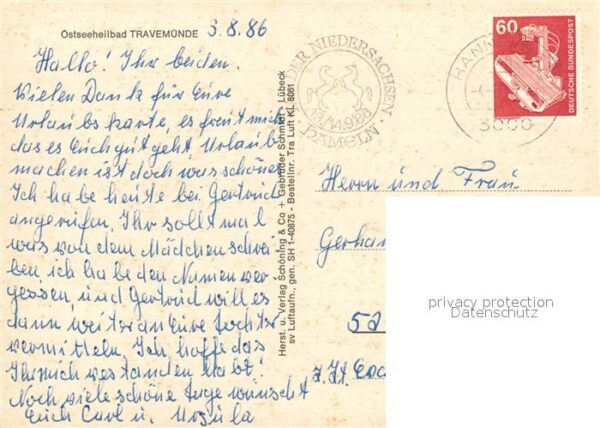 Ostseeheilbad TRAVEMÜNDE 3.8.86
Hallo! Ihr beiden.
Vielen Dank für Eure
Urlaubskarte, es freut mich
das es Euch gut geht. Urlaub
machen ist doch was schönes
Ich habe heute bei Gertrud
angerufen, Ihr sollt mal
was von dem Mädchen schrei-
ben ich habe den Namen ver-
gessen, und Gertrud will es
dann weiter an Eure Tochter
vermitteln. Ich, hoffe das
Ihr mich verstanden habt!
Noch viele schöne Tage wünscht
Euch Carl u. Ursula
Herst. u. Verlag Schöning & Co + Gebrüder Schmidt - Lübeck
sv Luftaufn., gen. SH 1-40875 - Bestellnr. Tra Luft KL 8061
DER NIEDERSACHSEN
13./14.9.86
HAMELN
HANN
3000
60
DEUTSCHE BUNDESPOST
Herrn und Frau
Gerha
52
z. Zt.
privacy protection
Datenschutz